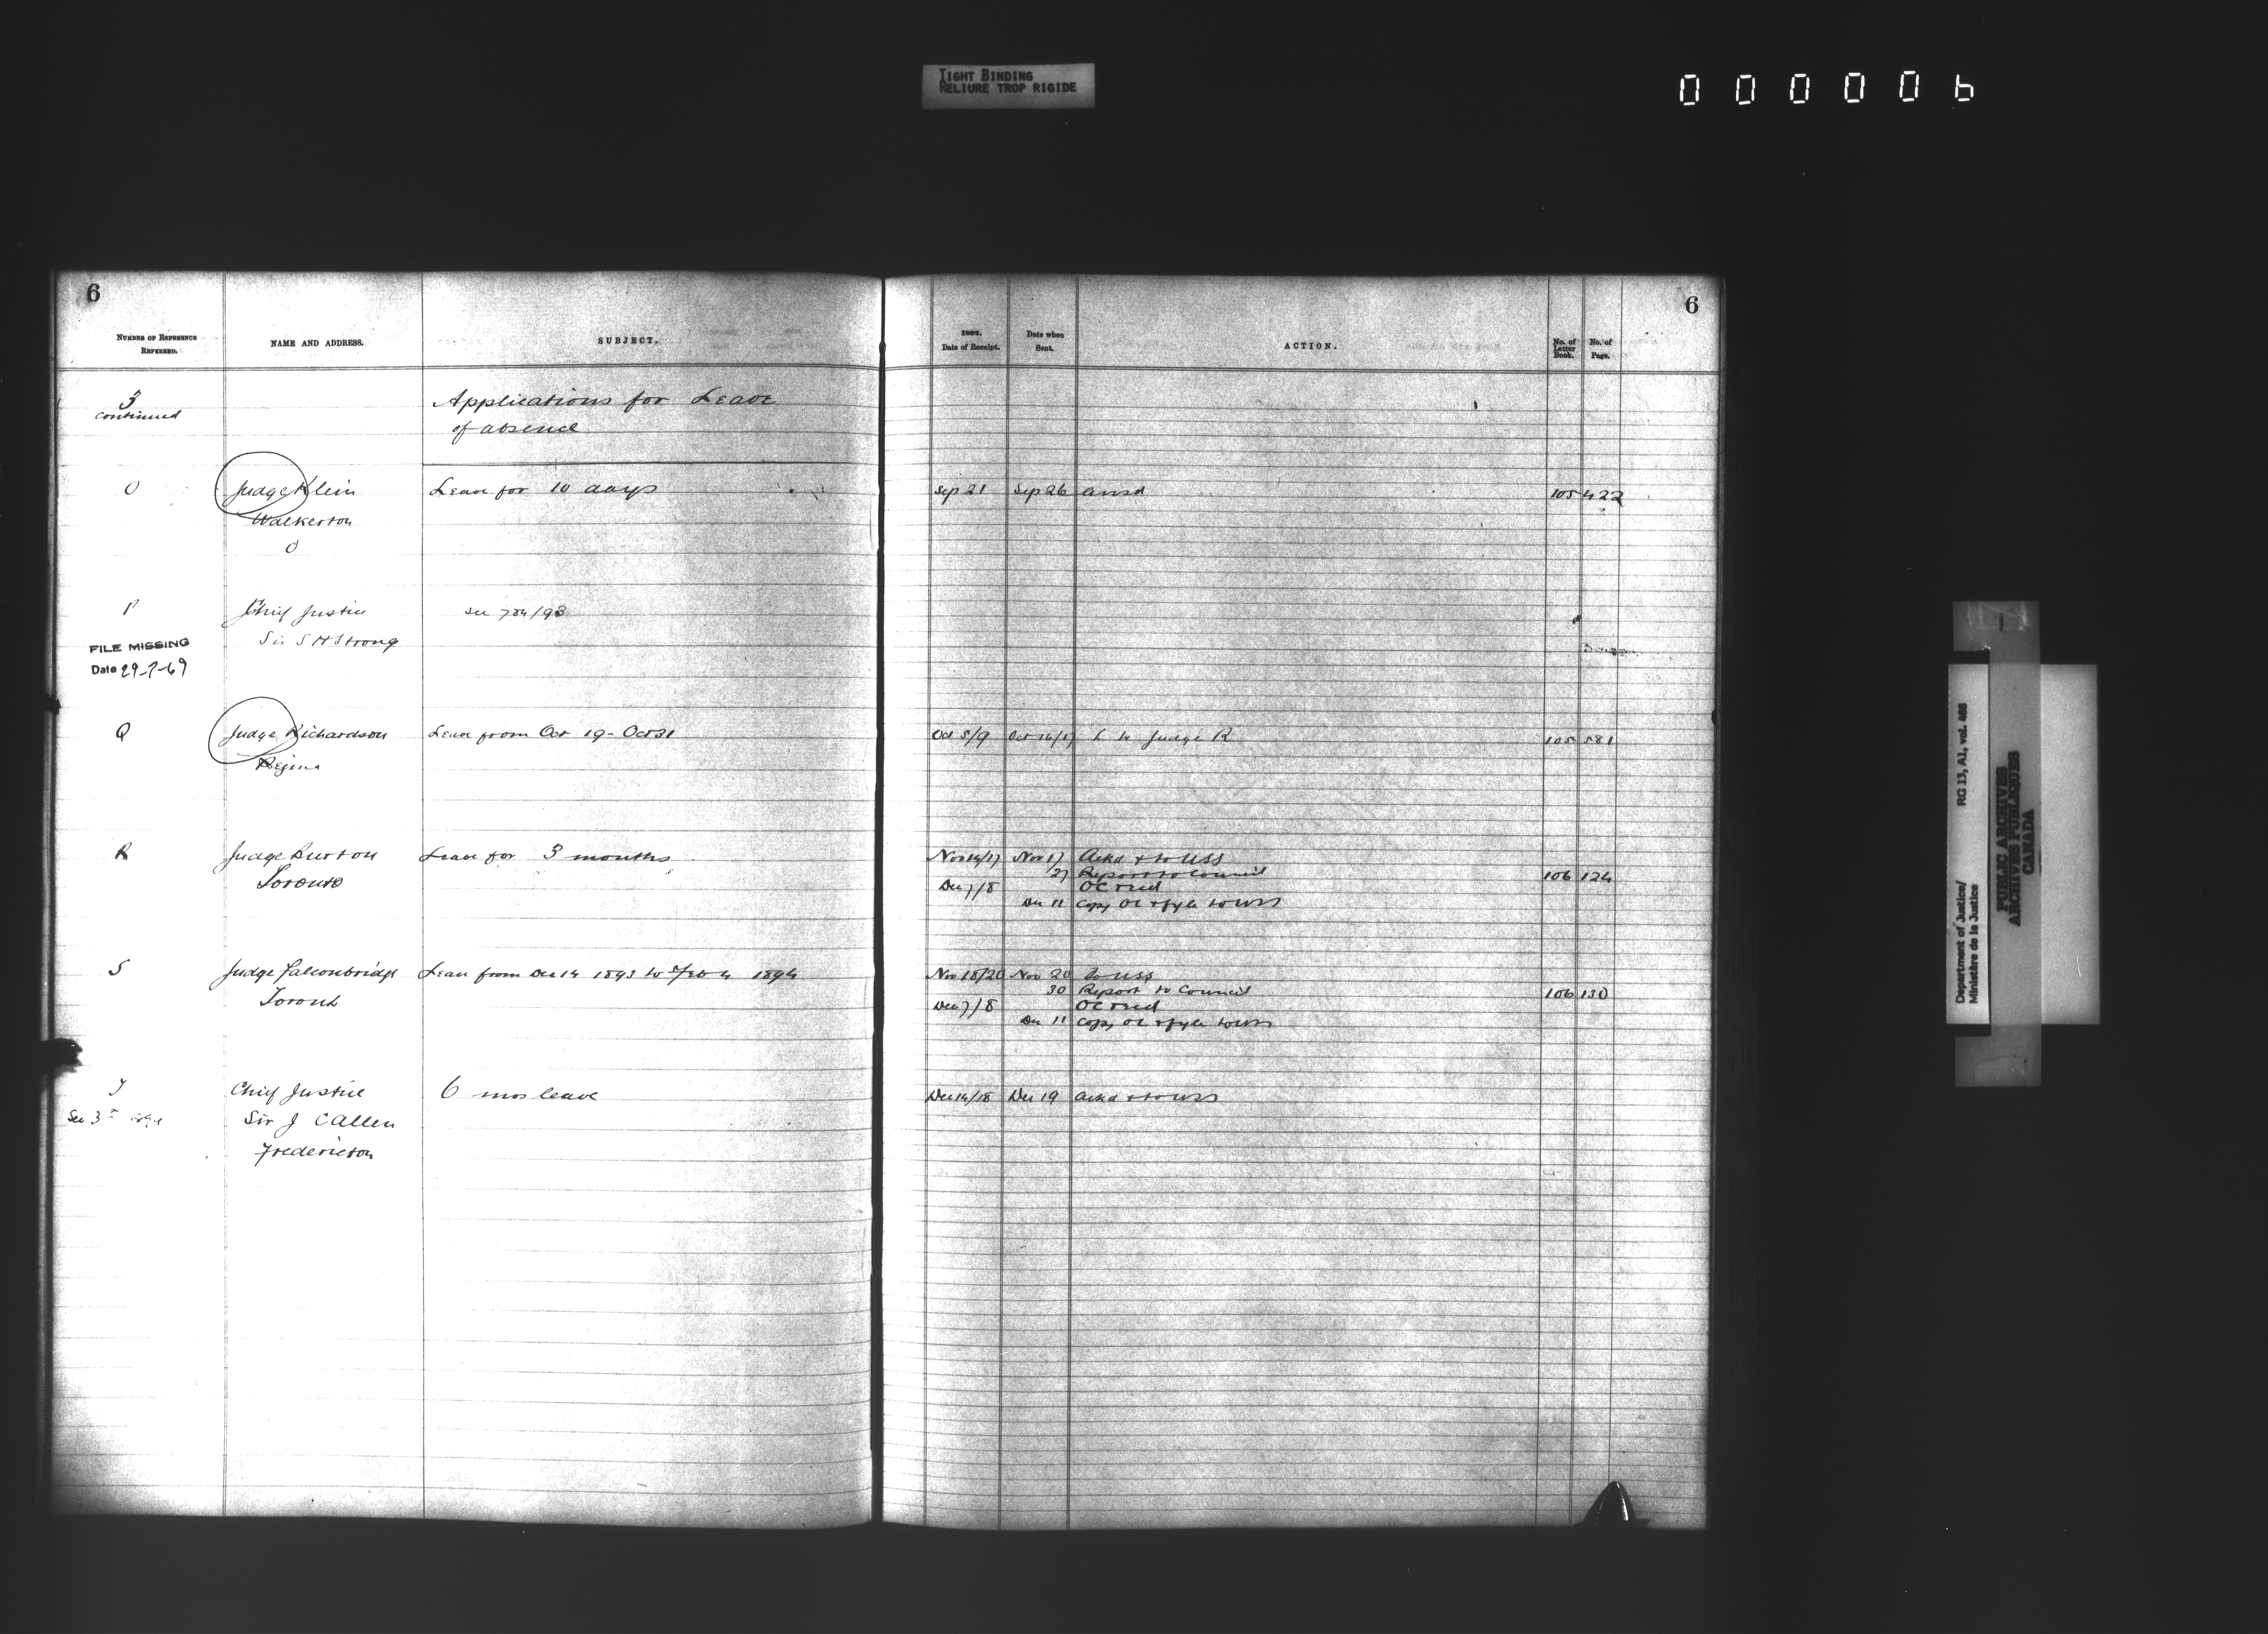 TIGHT BINDING
RELIURE TROP RIGIDE
000006
6
6
NUMBER OF REFERENCE REFERRED.
NAME AND ADDRESS.
SUBJECT.
Date of Receipt.
Date when Sent.
ACTION.
No. of Letter Book.
No. of Page.
3 continued
Applications for Leave
of absence
O
Judge Klein
Leave for 10 days
Sep 21
Sep 26
ansd
105
422
Walkerton
O
P
Chief Justice
see 704/93
Sir S H Strong
FILE MISSING
Date 29-7-69
Q
Judge Richardson
Leave from Oct 19 - Oct 31
Oct 5/9
Oct 16/17
L to Judge R
105
581
Regina
R
Judge Burton
Leave for 3 months
Nov 14/17
Nov 17
Ackd & to USS
Toronto
27
Report to Council
106
124
Dec 7/8
OC recd
Dec 11
Copy OC & fyle to USS
S
Judge Falconbridge
Leave from Dec 14 1893 to Feb 4 1894
Nov 18/20
Nov 20
to USS
Toronto
30
Report to Council
106
130
Dec 7/8
OC recd
Dec 11
Copy OC & fyle to USS
T
Chief Justice
6 mos leave
Dec 14/18
Dec 19
Ackd & to USS
See 3
Sir J C Allen
Fredericton
Department of Justice/
Ministère de la Justice
RG 13, A1, vol. 468
PUBLIC ARCHIVES
ARCHIVES PUBLIQUES
CANADA